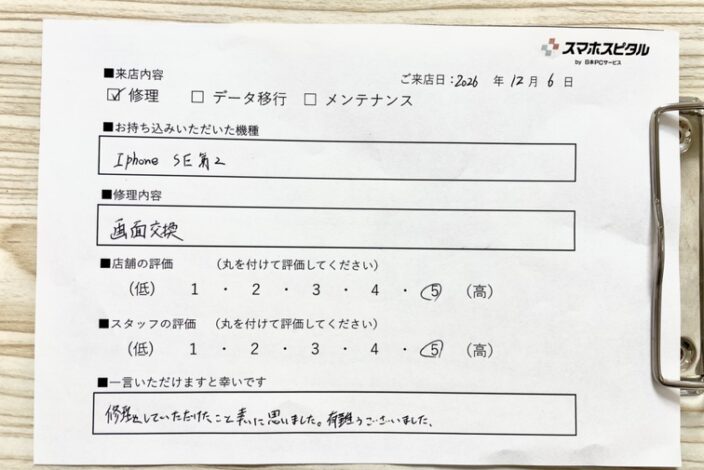 スマホスピタル
by 日本PCサービス
■来店内容
ご来店日：2026 年 12 月 6 日
☑ 修理 □ データ移行 □ メンテナンス
■お持ち込みいただいた機種
Iphone SE 第2
■修理内容
画面交換
■店舗の評価 （丸を付けて評価してください）
（低） 1 ・ 2 ・ 3 ・ 4 ・ 5 （高）
■スタッフの評価 （丸を付けて評価してください）
（低） 1 ・ 2 ・ 3 ・ 4 ・ 5 （高）
■一言いただけますと幸いです
修理していただけたこと 素に思いました。有難うございました、